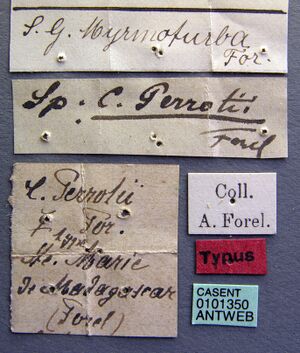 S. G. Myrmoturba
For.
Sp: C. Perrotii
Forel
C. Perrotii
For.
Ste. Marie
de Madagascar
(Forel)
Coll.
A. Forel.
Typus
CASENT
0101350
ANTWEB